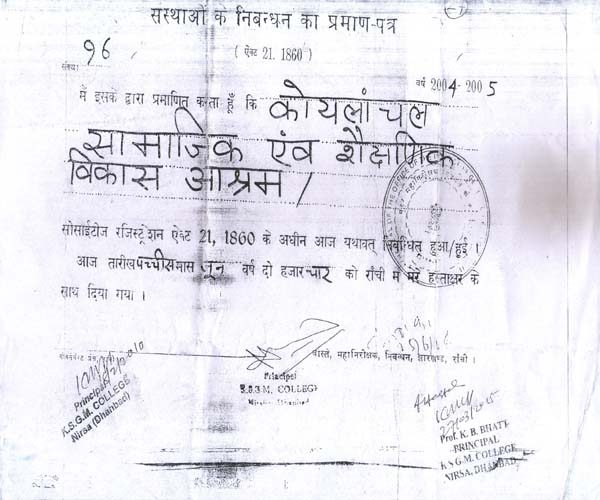 संस्थाओं के निबन्धन का प्रमाण-पत्र
( ऐक्ट 21, 1860 )
संख्या 96 वर्ष 2004-2005
मैं इसके द्वारा प्रमाणित करता हूँ कि कोयलांचल
सामाजिक एंव शैक्षणिक
विकास आश्रम/
सोसाईटीज रजिस्ट्रेशन ऐक्ट 21, 1860 के अधीन आज यथावत् निबन्धित हुआ/हुई ।
आज तारीख पच्चीस मास जून वर्ष दो हजार चार को राँची में मेरे हस्ताक्षर के
साथ दिया गया ।
वास्ते, महानिरीक्षक, निबन्धन, झारखण्ड, राँची ।
Principal
K.S.G.M. COLLEGE
Nirsa (Dhanbad)
Principal
K.S.G.M. COLLEGE
Nirsa, Dhanbad
Prof. K. B. BHATT
PRINCIPAL
K S G M. COLLEGE
NIRSA, DHANBAD